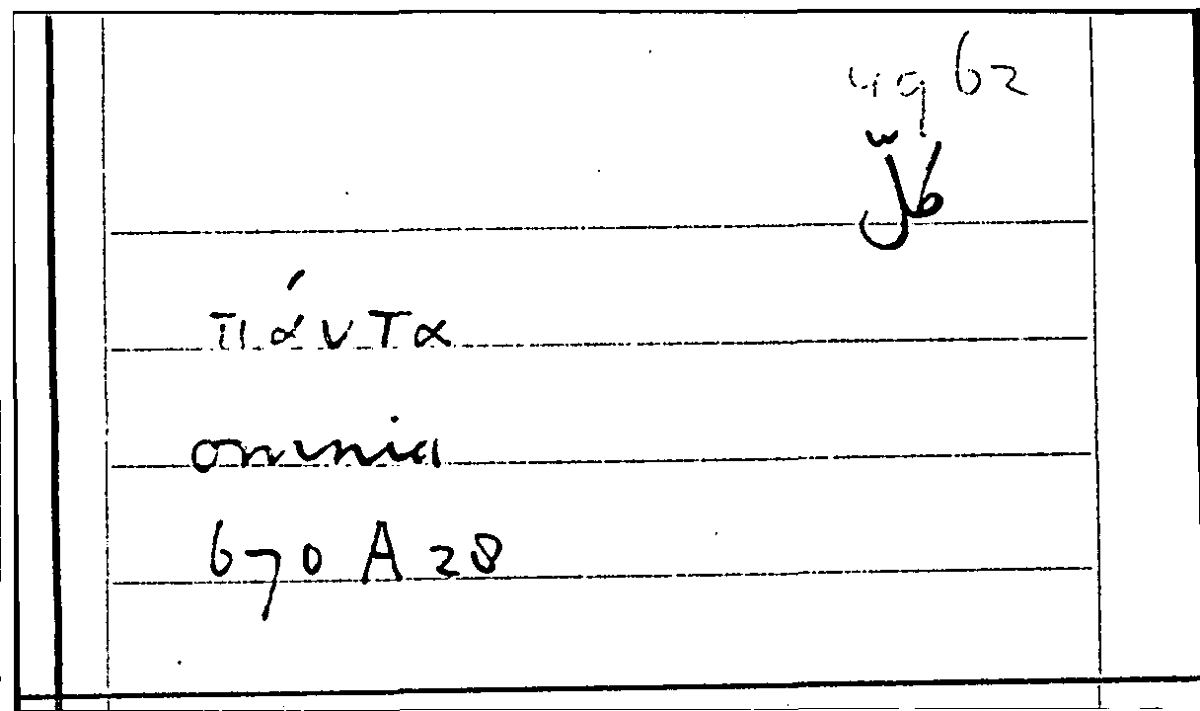 4962
كلّ
πάντα
omnia
670 A 28